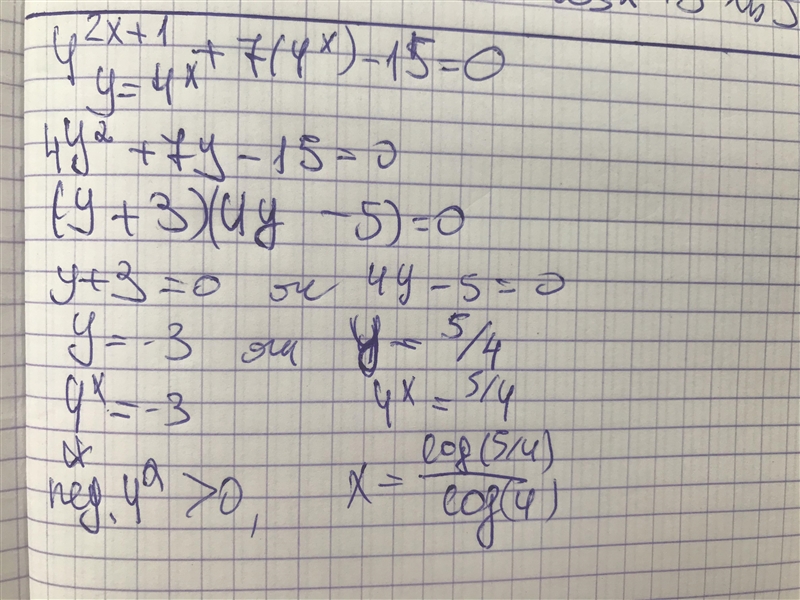 4^{2x+1} + 7(4^x) - 15 = 0
y = 4^x
4y² + 7y - 15 = 0
(y + 3)(4y - 5) = 0
y + 3 = 0 4y - 5 = 0
y = -3 y = 5/4
4^x = -3 4^x = 5/4
4^a > 0, x = log(5/4) / log(4)